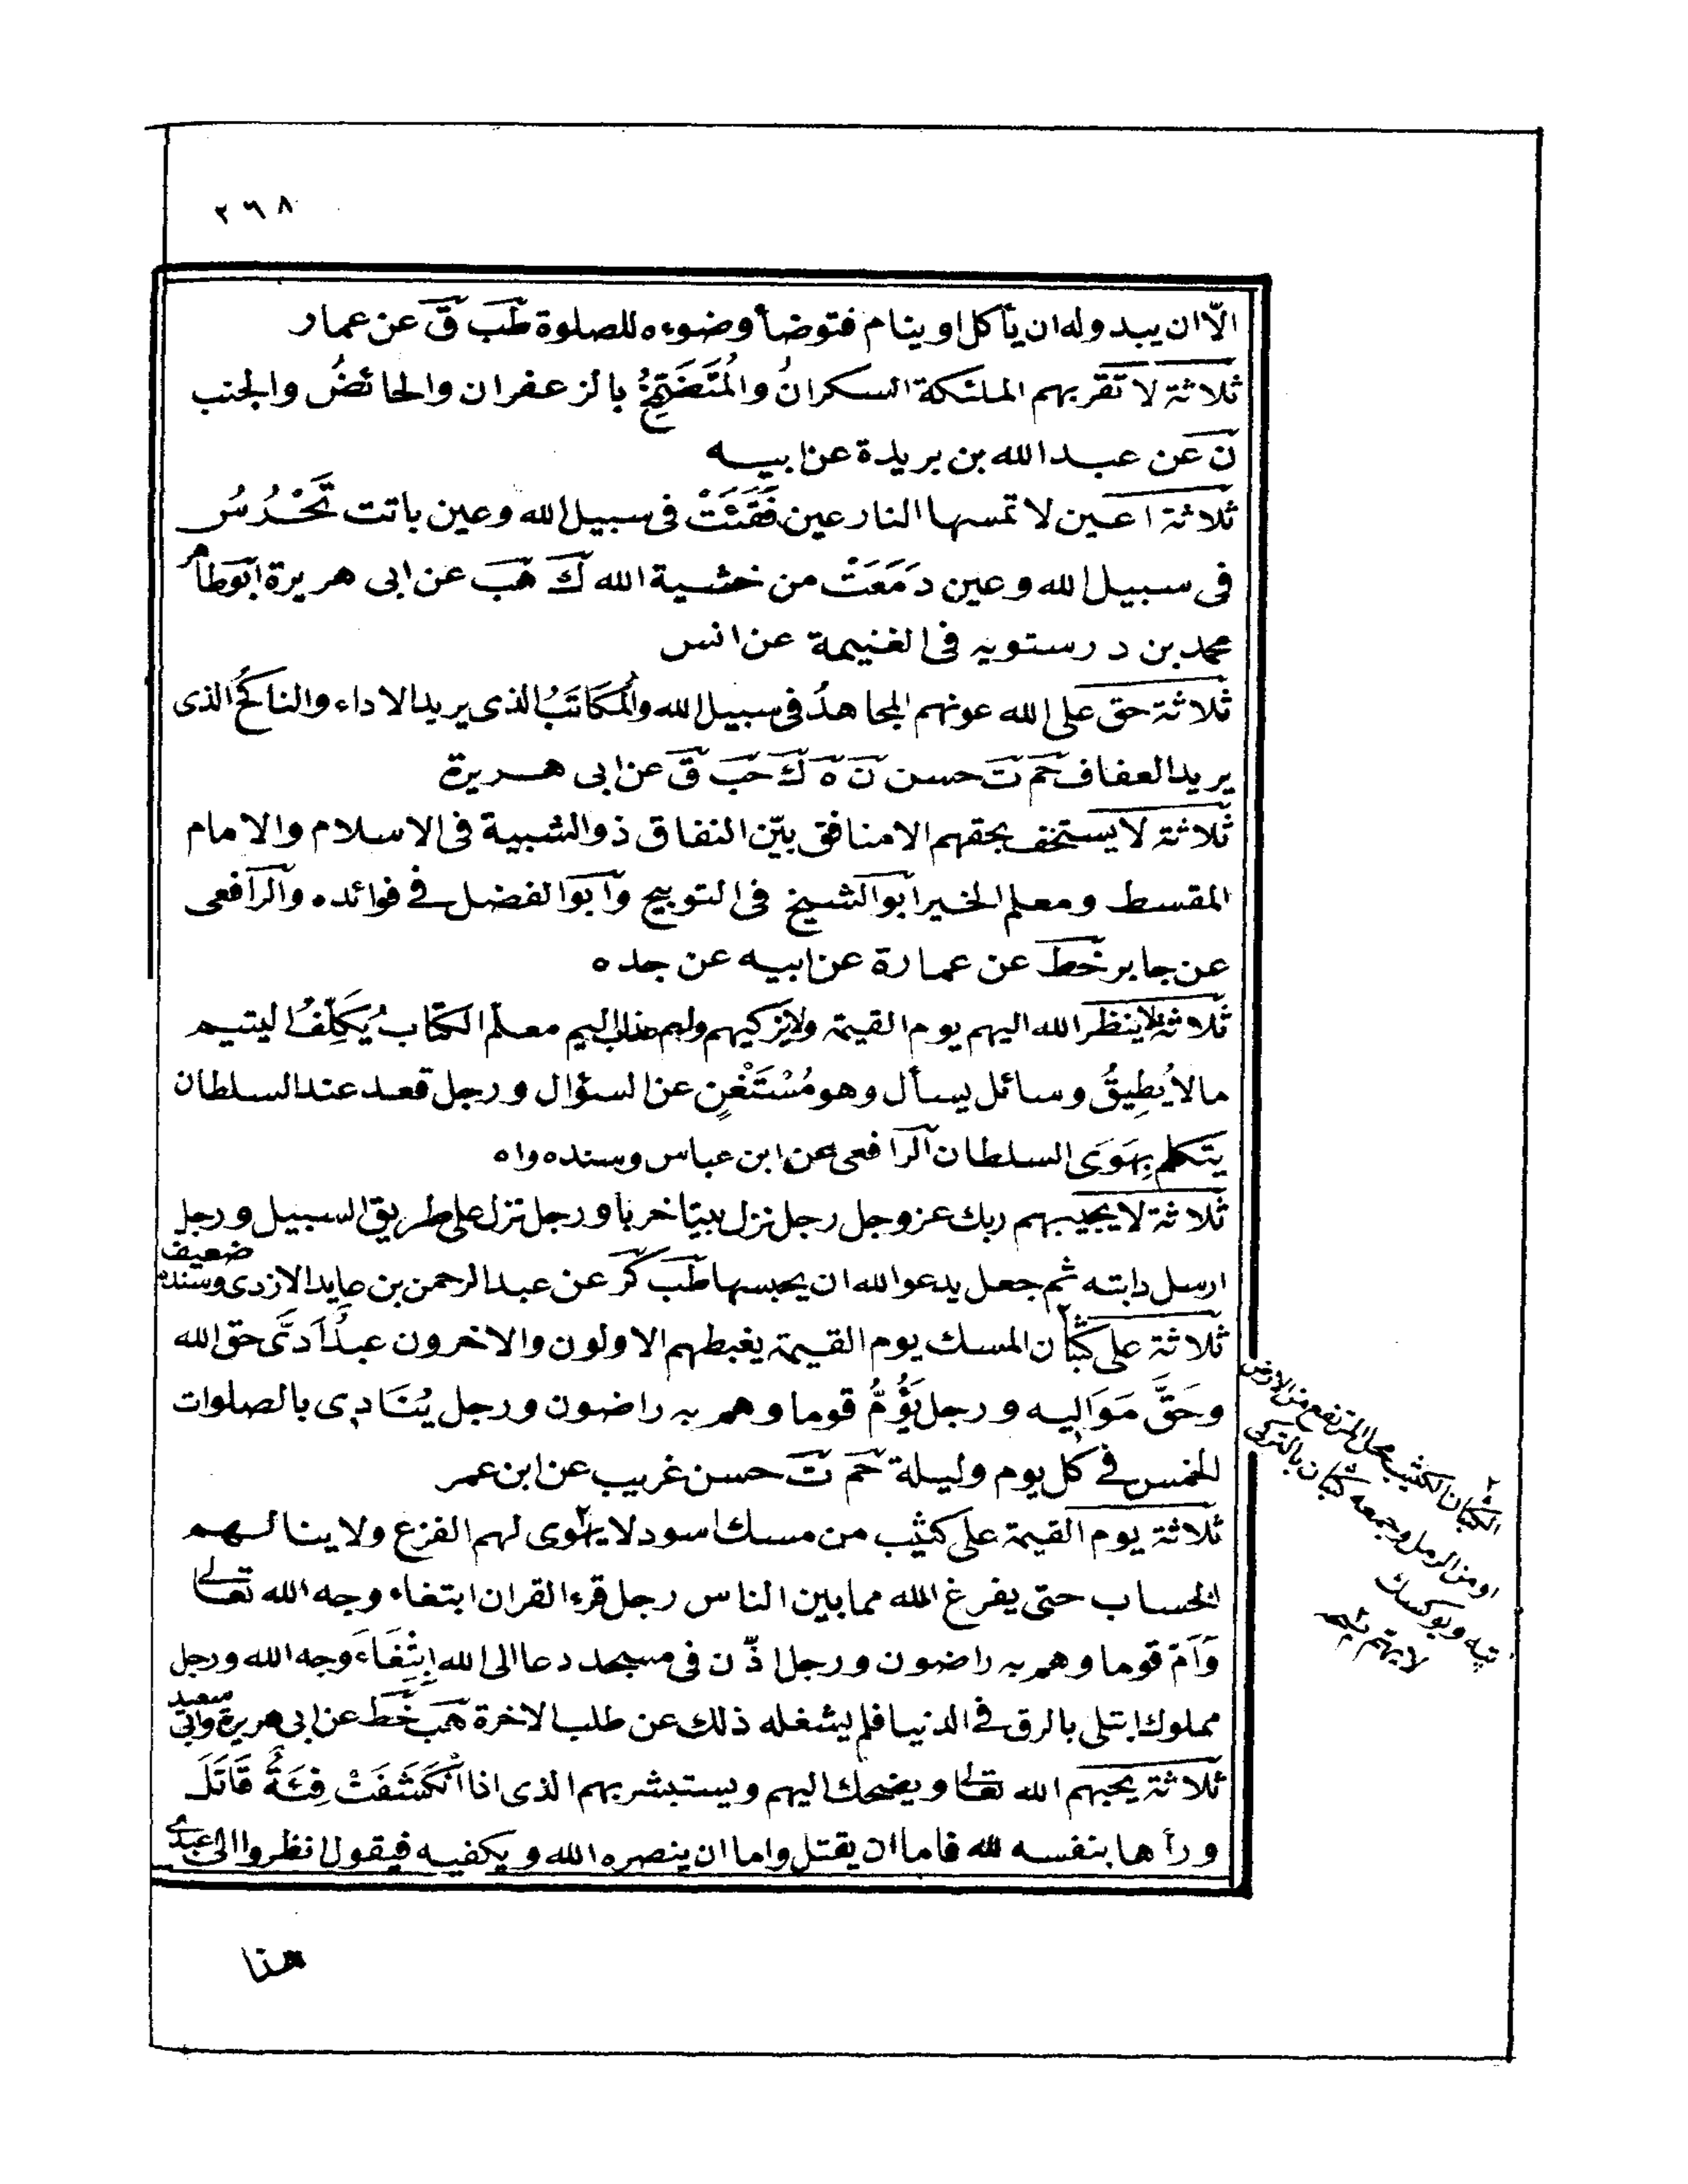 ٢٦٨
الّا ان يبدو له ان يأكل او ينام فتوضأ وضوءه للصلوة طب ق عن عمار
ثلاثة لا تقربهم الملئكة السكرانُ والمُتَضَمِّخُ بالزعفران والحائضُ والجنب
ن عن عبد الله بن بريدة عن ابيه
ثلاثة اعين لا تمسها النار عين فُقِئَتْ فى سبيل الله وعين باتت تَحْرُسُ
فى سبيل الله وعين دَمَعَتْ من خشية الله ك هب عن ابى هريرة ابو طاهر
محمد بن درستويه فى الغنيمة عن انس
ثلاثة حق على الله عونهم المجاهدُ فى سبيل الله والمُكَاتَبُ الذى يريد الاداء والناكحُ الذى
يريد العفاف حم ت حسن ن ه ك حب ق عن ابى هريرة
ثلاثة لا يستخف بحقهم الا منافق بيّن النفاق ذو الشيبة فى الاسلام والامام
المقسط ومعلم الخير ابو الشيخ فى التوبيخ وابو الفضل فى فوائده والرافعى
عن جابر خط عن عمارة عن ابيه عن جده
ثلاثة لا ينظر الله اليهم يوم القيمة ولا يزكيهم ولهم عذاب اليم معلّم الكتّاب يُكَلِّفُ اليتيم
ما لا يُطِيقُ وسائل يسأل وهو مُسْتَغْنٍ عن السؤال ورجل قعد عند السلطان
يتكلم بِهَوَى السلطان الرافعى عن ابن عباس وسنده واه
ثلاثة لا يجيبهم ربك عز وجل رجل نزل بيتا خربا ورجل نزل على طريق السبيل ورجل
ارسل دابته ثم جعل يدعو الله ان يحبسها طب كر عن عبد الرحمن بن عايد الازدى وسنده ضعيف
ثلاثة على كثبان المسك يوم القيمة يغبطهم الاولون والاخرون عبدٌ اَدَّى حق الله
وحَقَّ مَوَاليه ورجل يَؤُمُّ قوما وهم به راضون ورجل يُنَادِى بالصلوات
الخمس فى كل يوم وليلة حم ت حسن غريب عن ابن عمر
ثلاثة يوم القيمة على كثيب من مسك اسود لا يهوى لهم الفزع ولا ينالهم
الحساب حتى يفرغ الله مما بين الناس رجل قرء القران ابتغاء وجه الله تعالى
وَاَمّ قوما وهم به راضون ورجل اذّن فى مسجد دعا الى الله اِبْتِغَاءَ وجه الله ورجل
مملوك ابتلى بالرق فى الدنيا فلم يشغله ذلك عن طلب الاخرة هب خط عن ابى هريرة وابى سعيد
ثلاثة يحبهم الله تعالى ويضحك اليهم ويستبشر بهم الذى اذا انْكَشَفَتْ فِئَةٌ قَاتَلَ
ورأها بنفسه لله فاما ان يقتل واما ان ينصره الله ويكفيه فيقول انظروا الى عبدى
هذا
الكثبان الكثيب محل المرتفع من الارض
او من الرمل وجمعه كثبان بالتركى
تپه ويوكسك